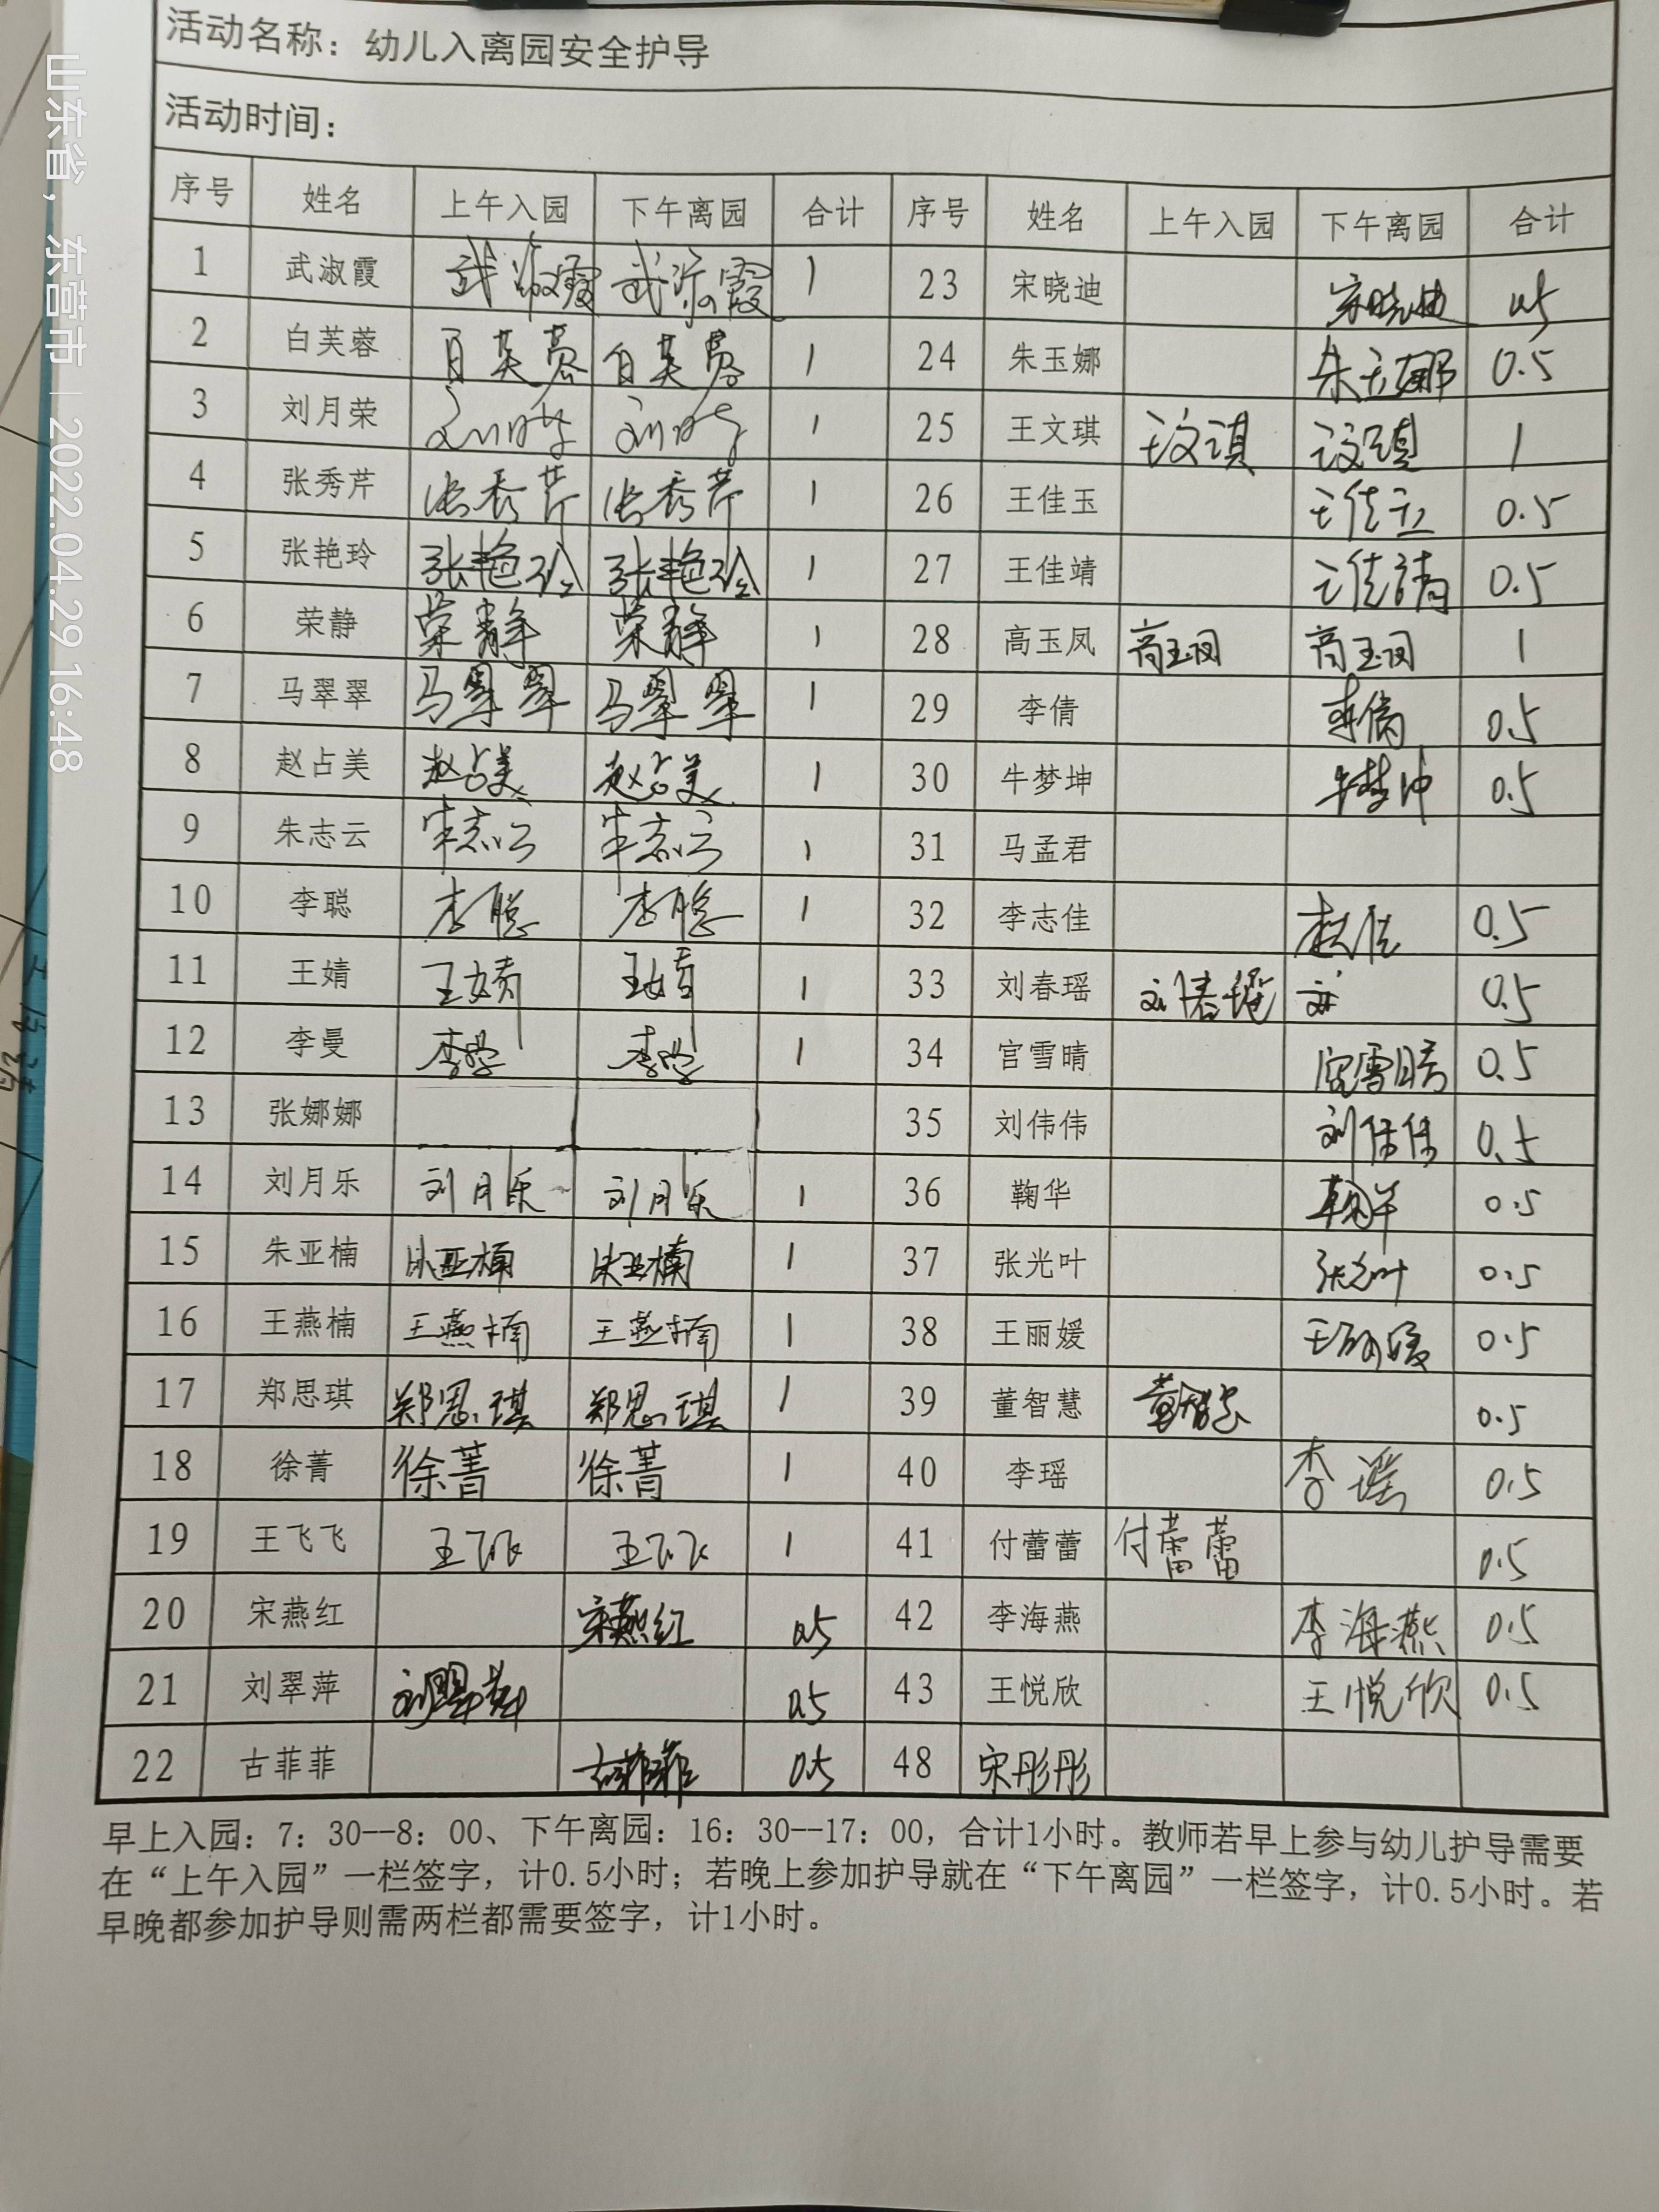 活动名称：幼儿入离园安全护导
活动时间：
序号 姓名 上午入园 下午离园 合计 序号 姓名 上午入园 下午离园 合计
1 武淑霞 武淑霞 武淑霞 1 23 宋晓迪 宋晓迪 0.5
2 白芙蓉 白芙蓉 白芙蓉 1 24 朱玉娜 朱玉娜 0.5
3 刘月荣 刘月荣 刘月荣 1 25 王文琪 王文琪 王文琪 1
4 张秀芹 张秀芹 张秀芹 1 26 王佳玉 王佳玉 0.5
5 张艳玲 张艳玲 张艳玲 1 27 王佳靖 王佳靖 0.5
6 荣静 荣静 荣静 1 28 高玉凤 高玉凤 高玉凤 1
7 马翠翠 马翠翠 马翠翠 1 29 李倩 李倩 0.5
8 赵占美 赵占美 赵占美 1 30 牛梦坤 牛梦坤 0.5
9 朱志云 朱志云 朱志云 1 31 马孟君
10 李聪 李聪 李聪 1 32 李志佳 李志佳 0.5
11 王婧 王婧 王婧 1 33 刘春瑶 刘春瑶 刘 0.5
12 李曼 李曼 李曼 1 34 官雪晴 官雪晴 0.5
13 张娜娜 35 刘伟伟 刘伟伟 0.5
14 刘月乐 刘月乐 刘月乐 1 36 鞠华 鞠华 0.5
15 朱亚楠 朱亚楠 朱亚楠 1 37 张光叶 张光叶 0.5
16 王燕楠 王燕楠 王燕楠 1 38 王丽媛 王丽媛 0.5
17 郑思琪 郑思琪 郑思琪 1 39 董智慧 董智慧 0.5
18 徐菁 徐菁 徐菁 1 40 李瑶 李瑶 0.5
19 王飞飞 王飞飞 王飞飞 1 41 付蕾蕾 付蕾蕾 0.5
20 宋燕红 宋燕红 0.5 42 李海燕 李海燕 0.5
21 刘翠萍 刘翠萍 0.5 43 王悦欣 王悦欣 0.5
22 古菲菲 古菲菲 0.5 48 宋彤彤
早上入园：7：30--8：00、下午离园：16：30--17：00，合计1小时。教师若早上参与幼儿护导需要
在“上午入园”一栏签字，计0.5小时；若晚上参加护导就在“下午离园”一栏签字，计0.5小时。若
早晚都参加护导则需两栏都需要签字，计1小时。
山东省，东营市 | 2022.04.29 16:48